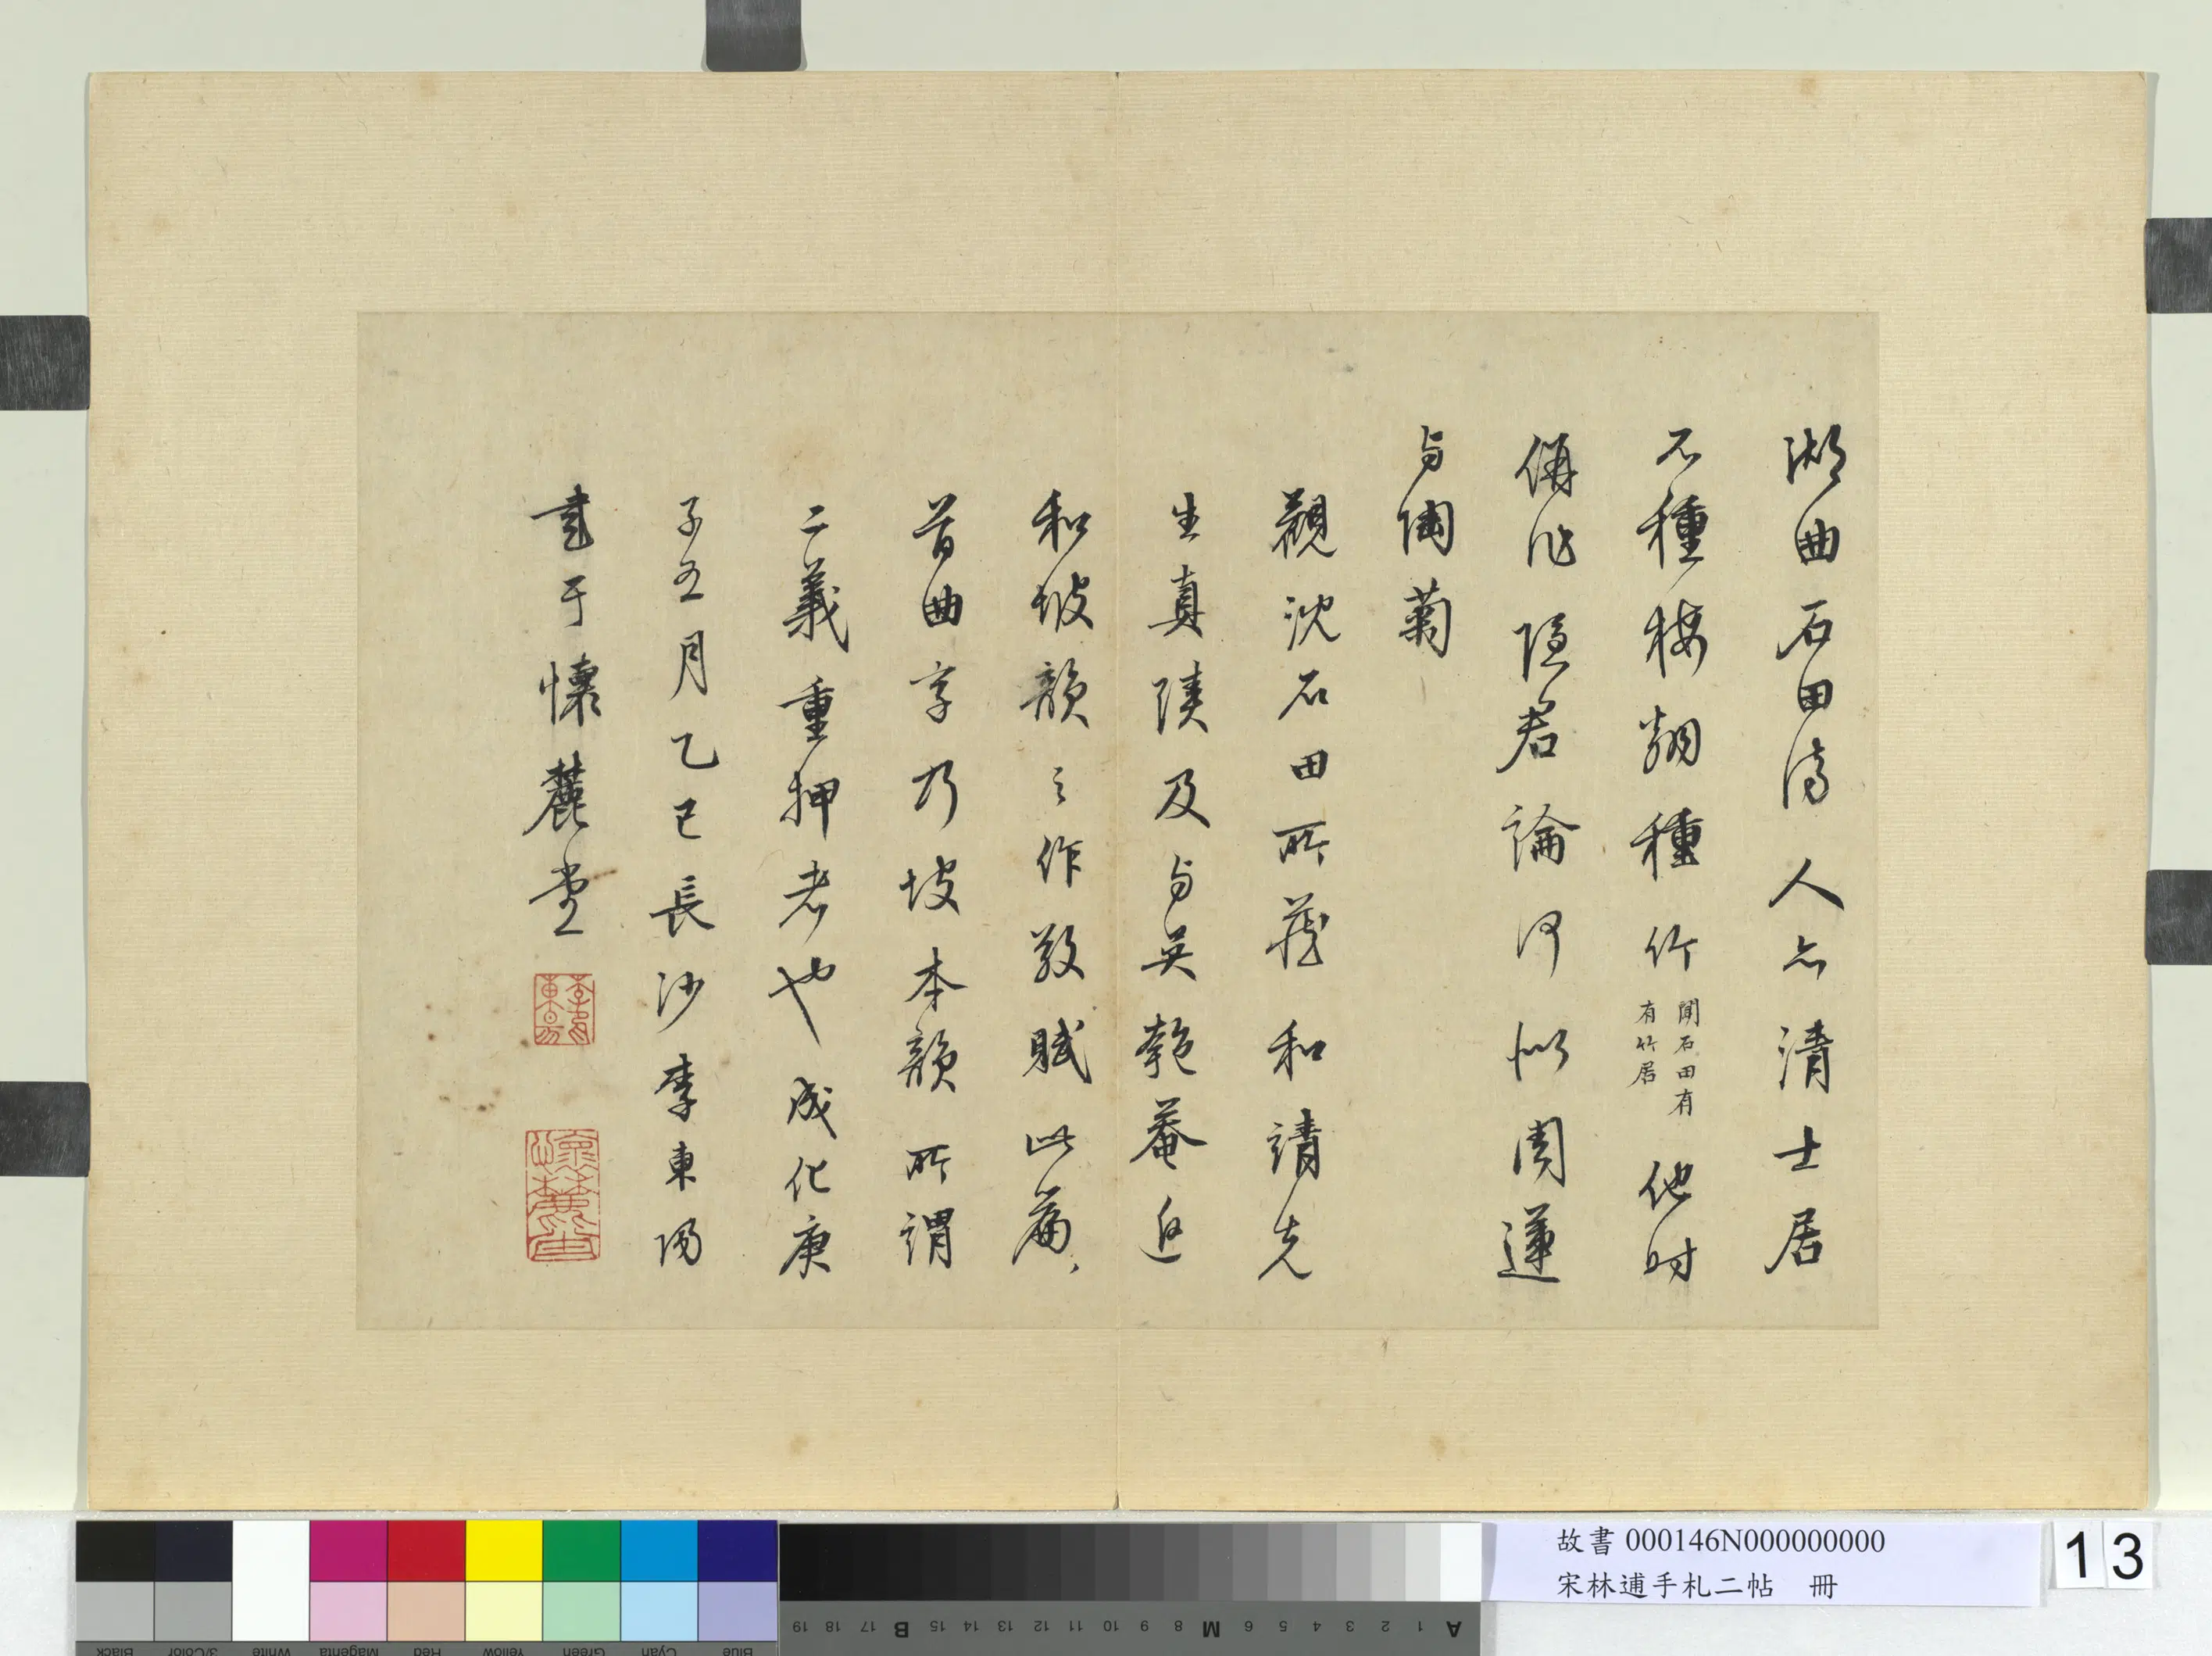 湖曲石田傍人亦清士居
不種梅翻種竹
聞石田有
有竹居
他时
倂作隱君論何似周蓮
与陶菊
觀沈石田所藏和靖先
生真蹟及与吳匏菴追
和坡韻之作敬賦此篇
首曲字乃坡本韻所謂
二義重押者也成化庚
子五月乙巳長沙李東陽
書于懷麓堂
懷麓堂
故書 000146N000000000
宋林逋手札二帖 冊
13
Black
3/Color
White
Magenta
Red
Yellow
Green
Cyan
Blue
A 1 2 3 4 5 6 M 8 9 10 11 12 13 14 15 B 17 18 19